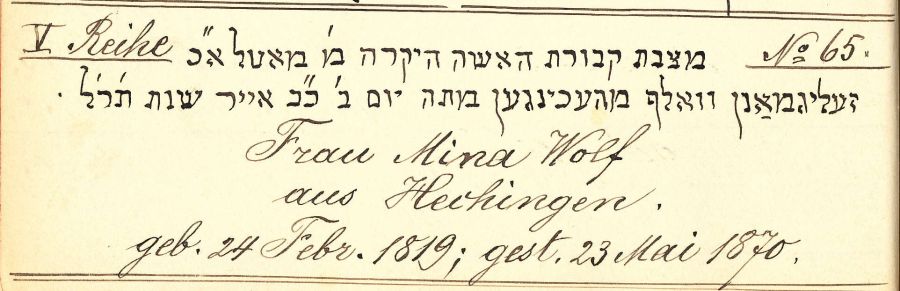 V Reihe
No 65.
מצבת קבורת האשה היקרה מ' מאטל א״כ
זעליגמאַנן וואלף מהעכינגען במתה יום ב' כ״ב אייר שנת ת'ר'ל .
Frau Mina Wolf
aus Hechingen.
geb. 24 Febr. 1819; gest. 23 Mai 1870.